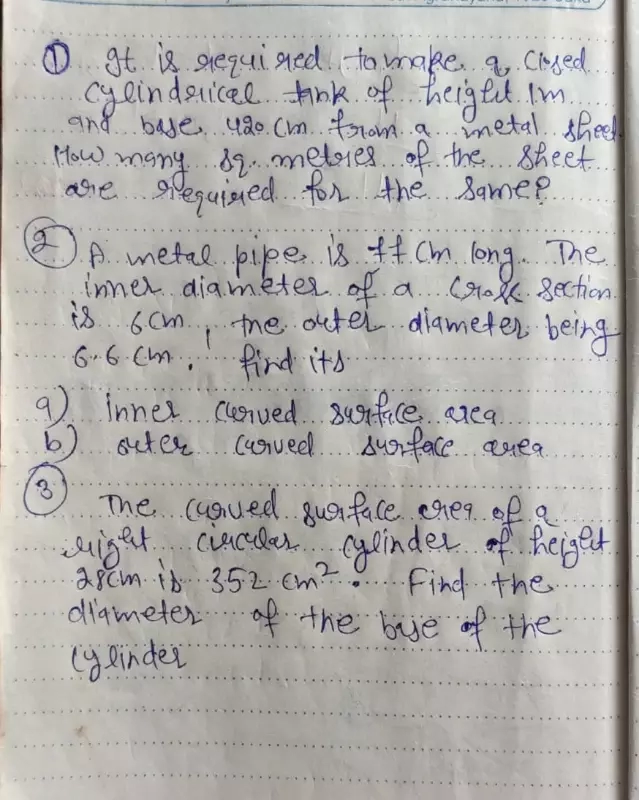 ① It is required to make a closed
cylinderical tank of height 1m
and base 420 cm from a metal sheet
How many sq. metres of the sheet
are required for the same?
② A metal pipe is 77 cm long. The
inner diameter of a cross section
is 6cm, the outer diameter being
6.6 cm. find its
a) inner curved surface area
b) outer curved surface area
③ The curved surface area of a
right circular cylinder of height
28cm is 352 cm². Find the
diameter of the base of the
cylinder